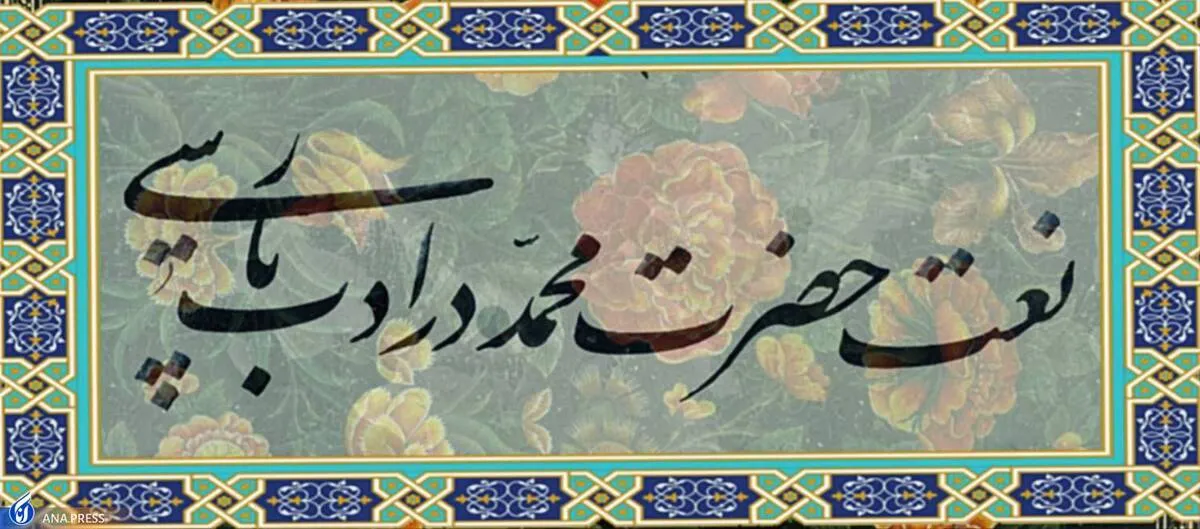 نعت حضرت محمّد در ادب پارسی
ANA.PRESS